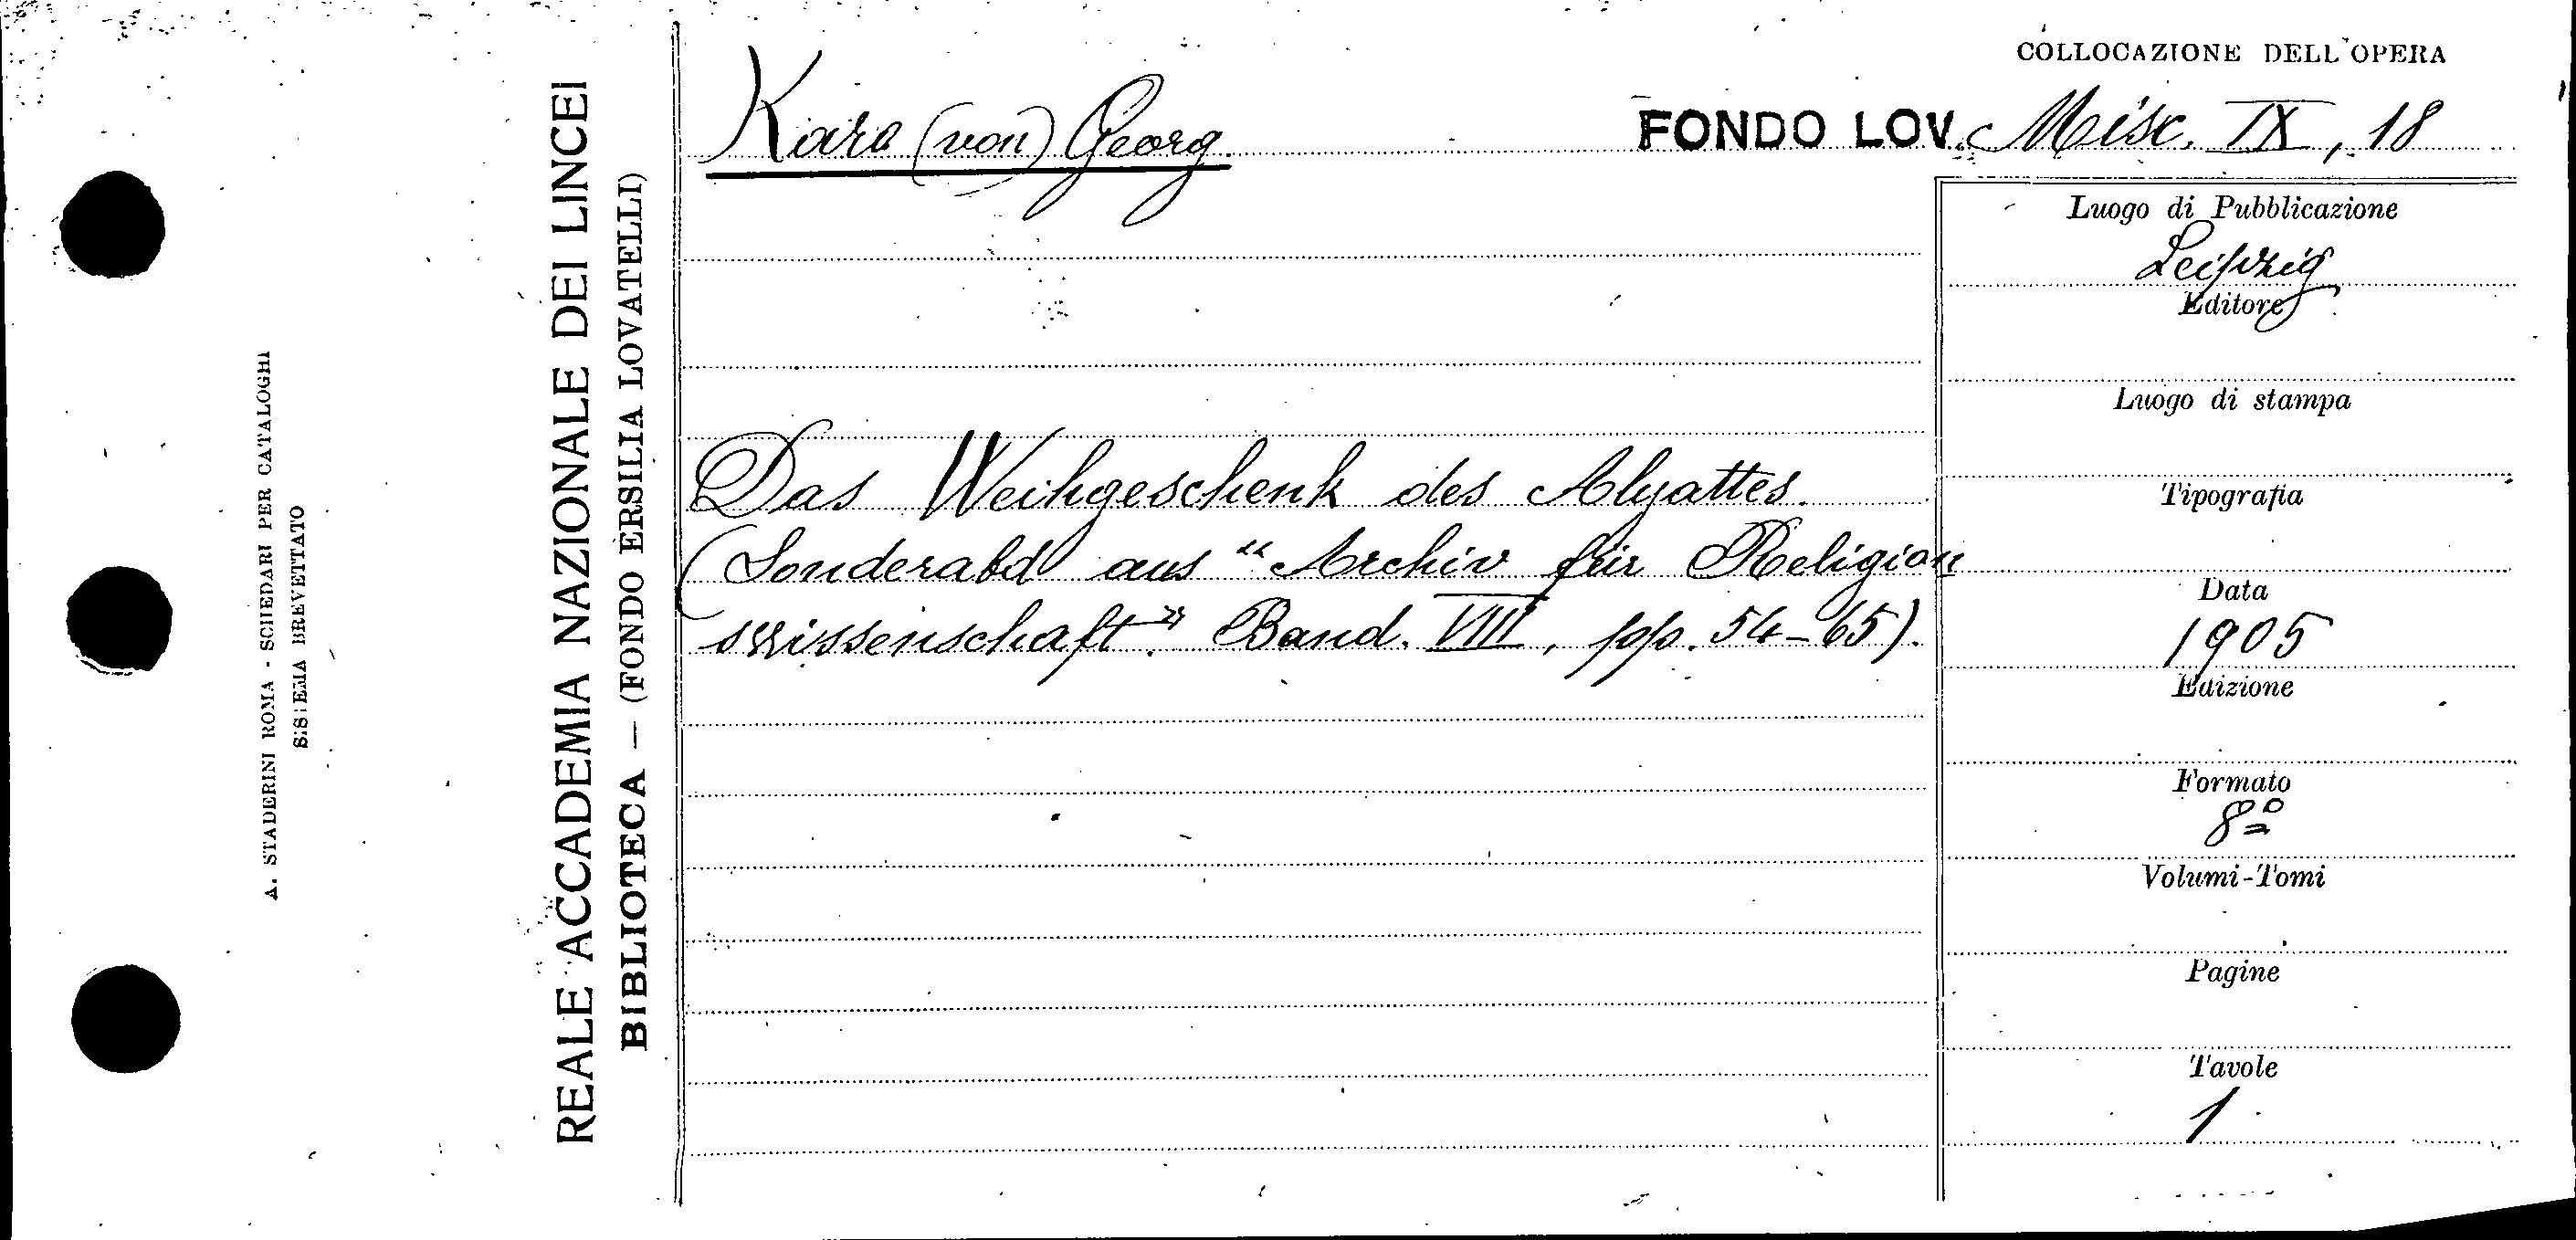 COLLOCAZIONE DELL'OPERA
Karo (von) Georg.
FONDO LOV. Misc. IX, 18
Das Weihgeschenk des Alyattes.
(Sonderabd aus "Archiv für Religion
swissenschaft." Band. VIII, pp. 54-65).
Luogo di Pubblicazione
Leipzig
Editore
Luogo di stampa
Tipografia
Data
1905
Edizione
Formato
8º
Volumi-Tomi
Pagine
Tavole
1
REALE ACCADEMIA NAZIONALE DEI LINCEI
BIBLIOTECA — (FONDO ERSILIA LOVATELLI)
A. STADERINI ROMA - SCHEDARI PER CATALOGHI
SISTEMA BREVETTATO